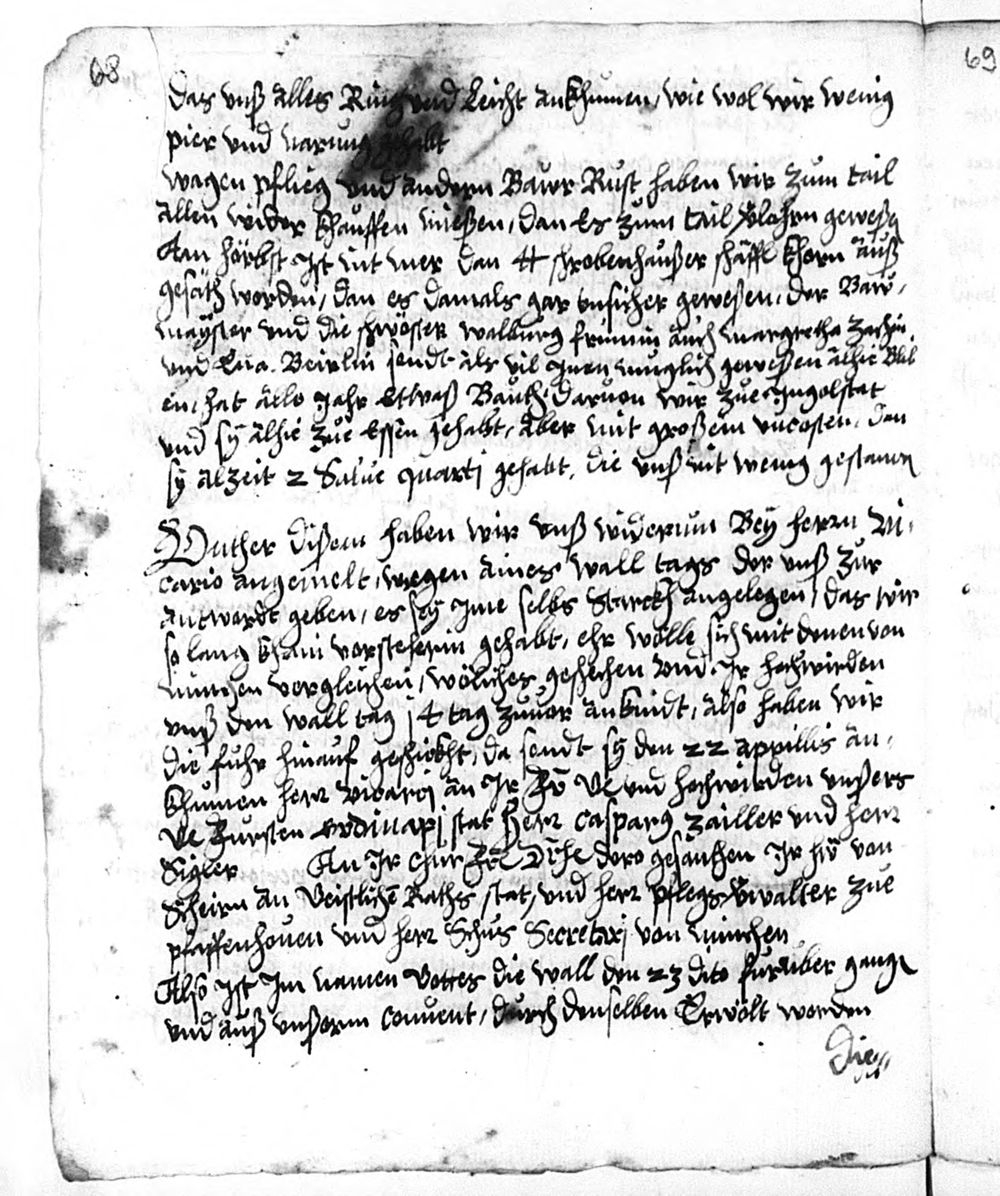 68
69
das unß alles Ring und leicht ankhumen, wie wol wir wenig
pier und narung gehabt
wagen pflieg und andern Bawr Rust haben wir zum tail
allen wider khauffen miessen, dan Es zum tail verlohrn geweßen
Am hörbst Ist nit mer dan 4 schrobenhaußer schäffl khorn auß
gesäth worden, dan es damals gar unsicher geweßen, der Baw,
mayster und die schwöster walburg frimin auch margretha zächin
und Eua. Beirlin sendt als vil Inen muglich geweßen alhie Blib
en, hat alle Jahr Etwaß Bauth, daruon wir zue Ingolstat
und sy alhie zue Essen gehabt, aber mit großem uncosten, dan
sy alzeit 2 Salue quarti gehabt, die unß nit wenig gestanden
Unther dißem haben wir unß widerum Bey herrn Vi,
cario angemelt, wegen aines wall tags der unß zur
antwordt geben, es sey Ime selbs starckh angelegen, das wir
so lang khain vorsteherin gehabt, ehr wölle sich mit denen von
minchen vergleichen, wöliches geschechen und Ir hochwirden
unß den wall tag 14 tag zuuor ankindt, also haben wir
die fuhr hinauf geschickht, da sendt sy den 22 appillis an,
khumen herr vicarj an Ir und hochwirden unßers
fürsten ordinarj stat herr casparg zailler und herr
Sigler An Ir chur dero gesanthen Ir von
Scheirn an Geistlichen Raths stat, und herr pflegs verwalter zue
pfaffenhouen und herr Schus Secretarj von minchen
Also Ist Im namen Gottes die wall den 23 dito furüber gangen
und auß unßerm conuent, durch denselben Erwölt worden
die